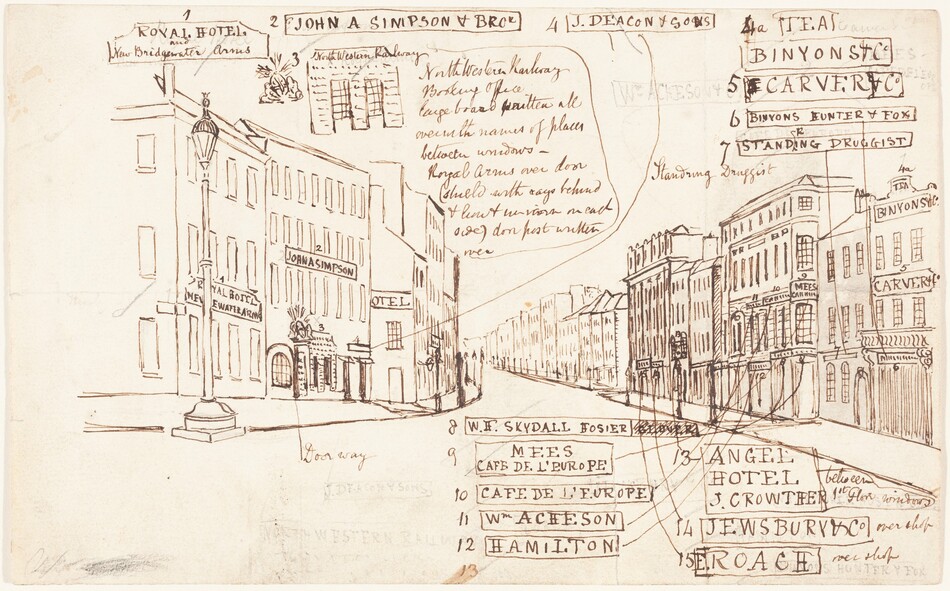 1
ROYAL HOTEL
and
New Bridgewater Arms
2 JOHN A SIMPSON & BROR
3
North Western Railway
North Western Railway
Booking Office
large board written all
over with names of places
between windows –
Royal Arms over door
(shield with rays behind
& lion & unicorn on each
side) door post written
over
4 J. DEACON & SONS
4a TEAS
BINYONS & Co
5 CARVER & Co
6 BINYONS HUNTER & FOX
7 STANDRING DRUGGIST
Standring Druggist
WM ACHESON
2
JOHN A SIMPSON
YAL HOTEL
NEW EWATER ARMS
OTEL
3
4
Door way
4a
TEA
BINYONS & Co
5
CARVER & Co
6
7
9
MEES
10
11
12
8 W.H. SKYDALL HOSIER GLOVER
9 MEES
CAFE DE L'EUROPE
10 CAFE DE L'EUROPE
11 Wm ACHESON
12 HAMILTON
13
13 ANGEL
HOTEL
J. CROWTHER
between
1st Floor windows
14 JEWSBURY & Co over shop
15 E. ROACH over shop
J. DEACON & SONS
NORTH WESTERN RAILWAY
HUNTER & FOX